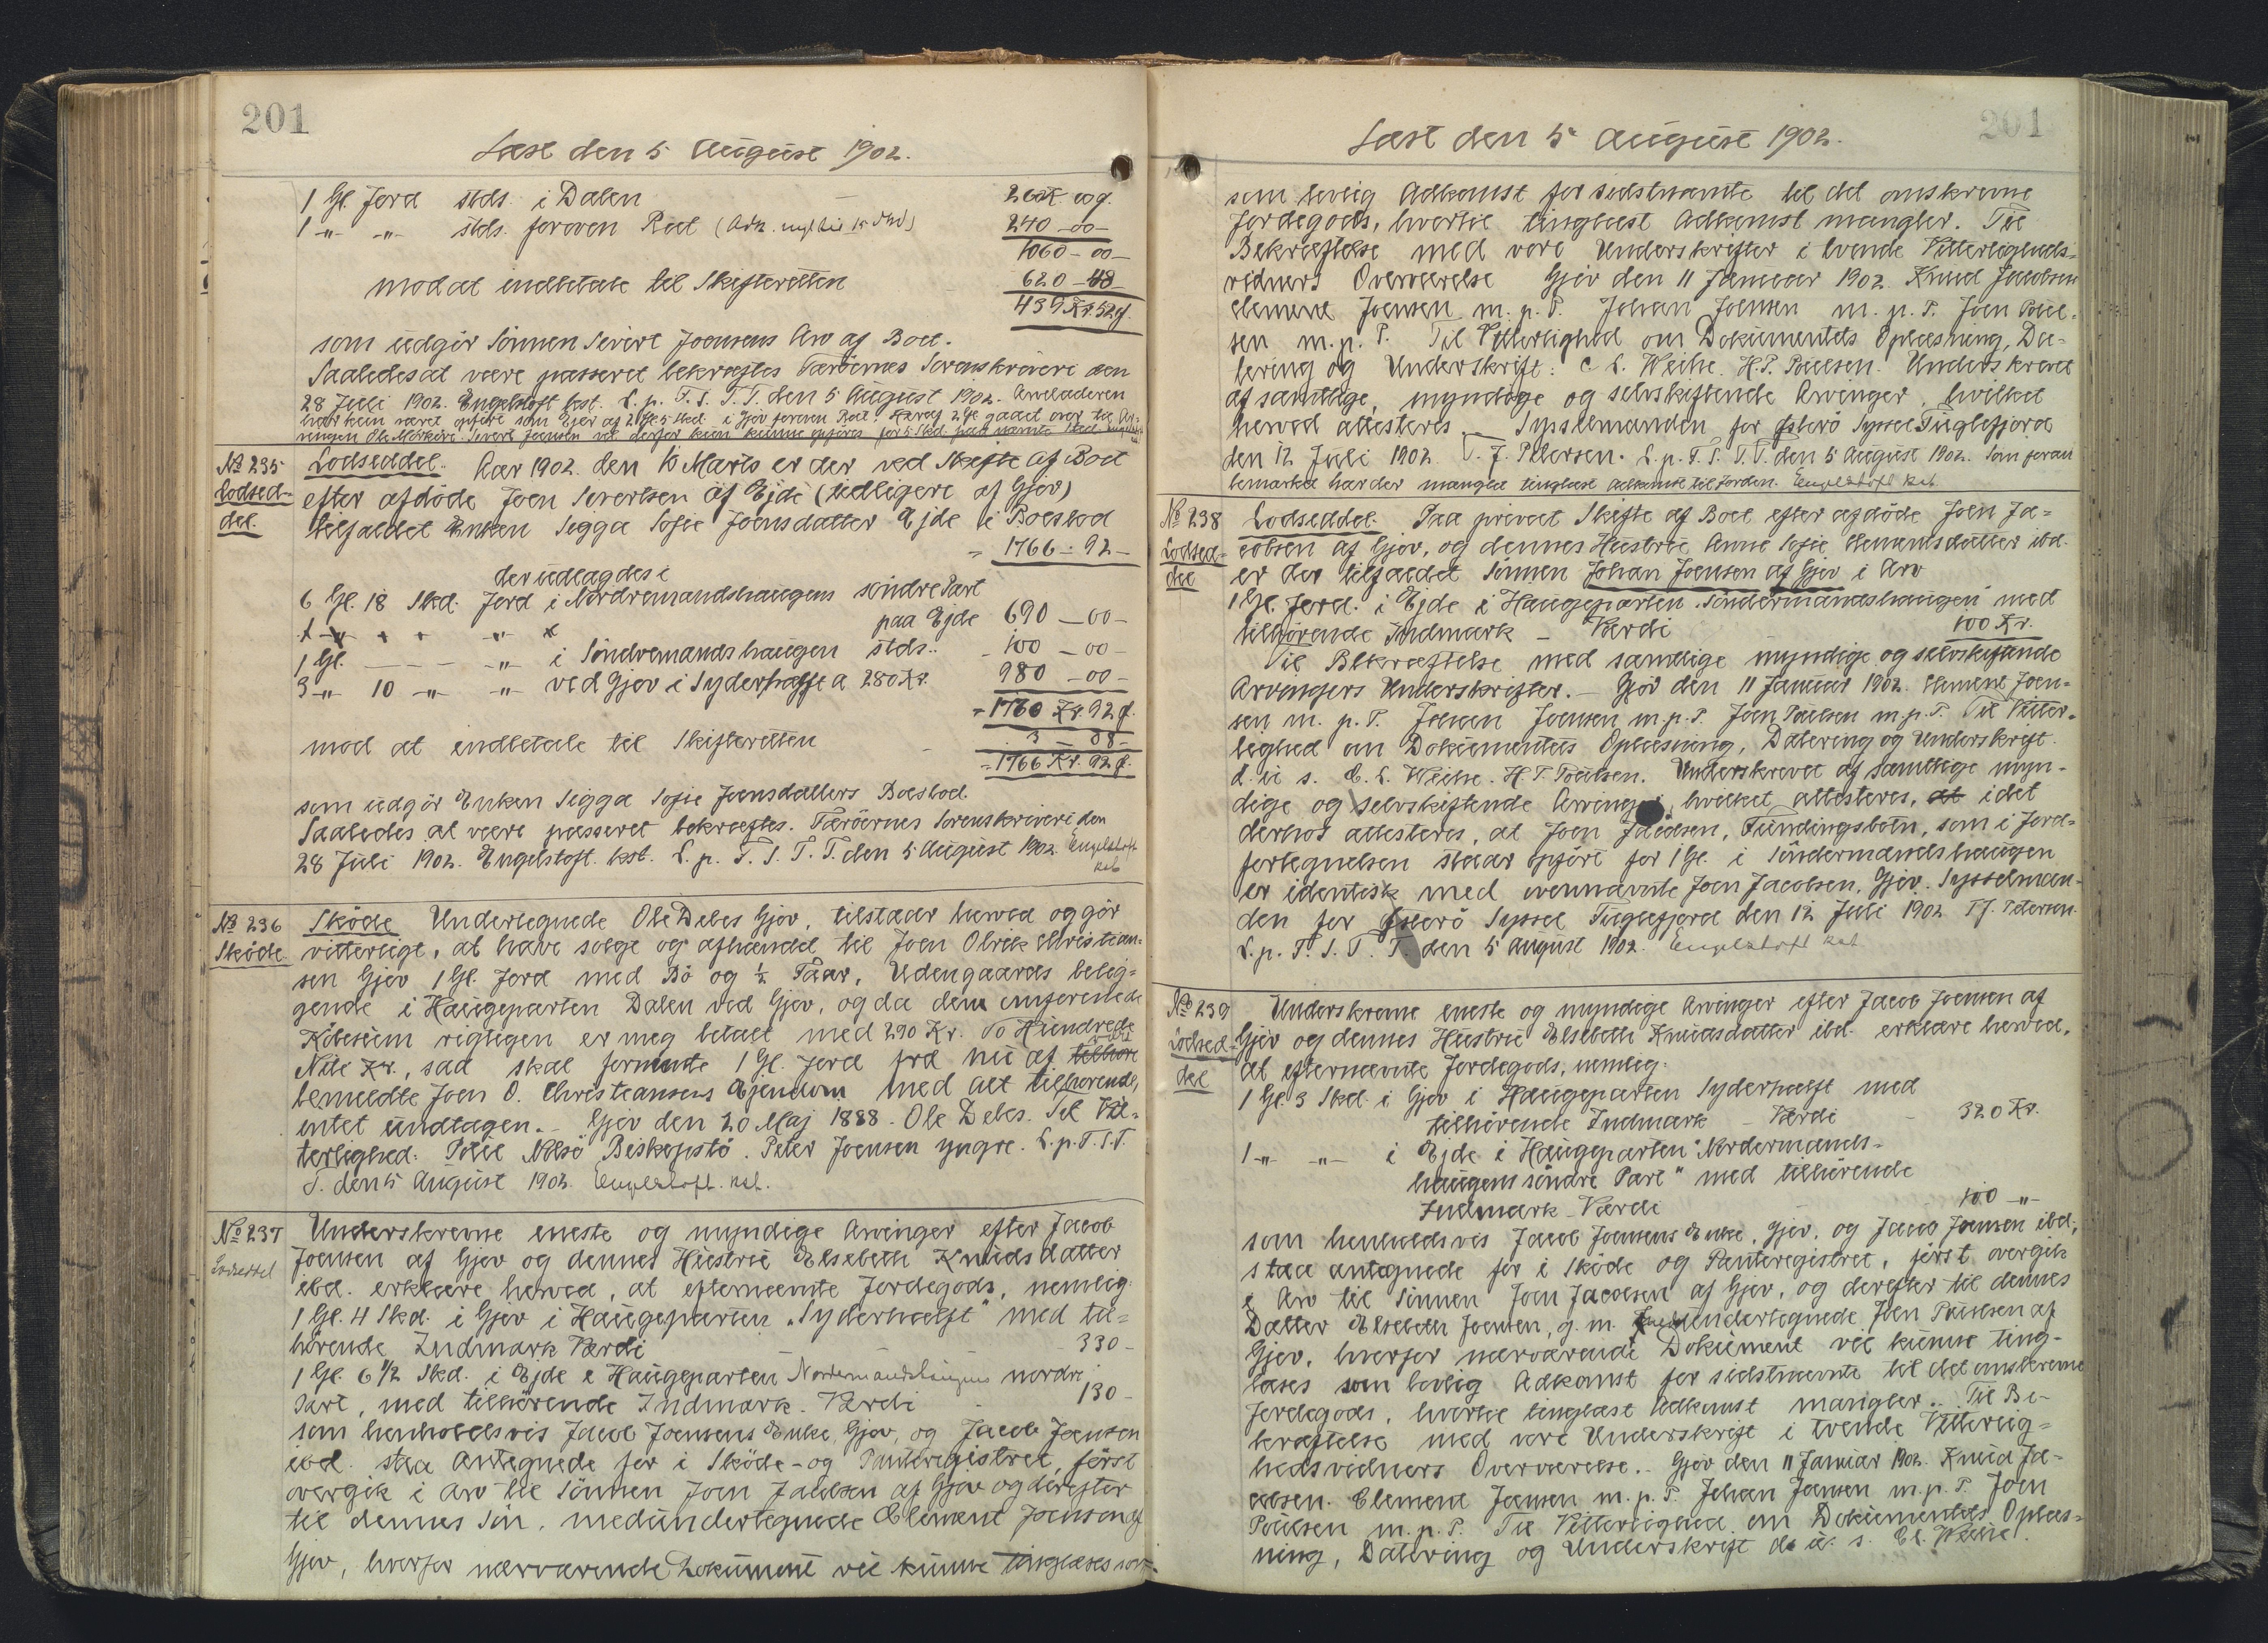 201
Læst den 5 August 1902.
1 Gl. Jord stds. i Dalen
1 -"- -"- stds. foroven Ræt 240 - 00 -
1060 - 00 -
mod at indbetale til Skifteretten 620 - 48 -
439 Kr. 52 Ø.
som udgör Sönnen Sivert Joensens Arv af Boet.
Saaledes at være passeret bekræftes Færöernes Sorenskriveri den
28 Juli 1902. Engelstoft kst. L. p. F. S. T. T. den 5 August 1902. Arveladeren
har kun været opfört som Ejer af 2 Gl. 5 Skd. i Gjov foroven Ræt. Heraf 2 Gl. gaaet over til Ar-
vingen Ole Sivert Joensen vil derfor kun kunne opföres for 5 Skd. paa nævnte Sted
No 235
Lodsed-
del.
Lodseddel. Aar 1902 den 10 Marts er der ved Skifte af Boet
efter afdöde Joen Sivertsen af Ejde (tidligere af Gjov)
tilfaldet Enken Sigga Sofie Joensdatter Ejde i Boeslod
= 1766 - 92 -
der udlagdes i
6 Gl. 18 Skd. Jord i Nordremandshaugens söndre Part
paa Ejde 690 - 00 -
1 Gl. - - - -"- i Söndremandshaugen stds. - 100 - 00 -
3 -"- 10 -"- -"- ved Gjov i Syderhalft a 280 Kr. 980 - 00 -
= 1760 Kr. 92 Ø.
mod at indbetale til Skifteretten - 3 - 08 -
= 1766 Kr. 92 Ø.
som udgör Enken Sigga Sofie Joensdatters Boeslod.
Saaledes at være passeret bekræftes. Færöernes Sorenskriveri den
28 Juli 1902. Engelstoft. kst. L. p. F. S. T. T. den 5 August 1902. Engelstoft
kst
No 236
Sköde.
Sköde Undertegnede Ole Debes Gjov, tilstaar herved og gör
vitterligt, at have solgt og afhændet til Joen Olrik Christian-
sen Gjov 1 Gl. Jord med Bö og ½ Faar, Udengaards belig-
gende i Haugeparten Dalen ved Gjov, og da den omforenede
Köbesum rigtigen er meg betalt med 290 Kr. to Hundrede
Niti Kr., saa skal formeldte 1 Gl. Jord fra nu af tilhöre
bemeldte Joen O. Christiansens Ejendom med alt tilhörende,
intet undtagen. - Gjov den 20 Maj 1888. Ole Debes. Til Vit-
terlighed: Poul Nolsö Biskopstö. Peter Joensen yngre. L. p. F. S. T.
T. den 5 August 1902 Engelstoft. kst.
No 237
Lodseddel
Underskrevne eneste og myndige Arvinger efter Jacob
Joensen af Gjov og dennes Hustru Elsebeth Knudsdatter
ibd. erklære herved, at efternævnte Jordegods, nemlig
1 Gl. 4 Skd. i Gjov i Haugeparten "Syderhalft" med til-
hörende Indmark Værdi 330 -
1 Gl. 6 ½ Skd. i Ejde i Haugeparten Nordremandshaugens nordre
Part, med tilhörende Indmark. Værdi - 130 -
som henholdsvis Jacob Joensens Enke, Gjov, og Jacob Joensen
ibd. staa antegnede for i Sköde- og Panteregistret, först
overgik i Arv til Sönnen Joen Jacobsen af Gjov og derefter
til dennes Sön, medundertegnede Clement Joensen af
Gjov, hvorfor nærværende Dokument vil kunne tinglæses som
201
Læst den 5 August 1902.
som lovlig Adkomst for sidstnævnte til det omskrevne
Jordegods, hvortil tinglæst Adkomst mangler. Til
Bekræftelse med vore Underskrifter i tvende Vitterligheds-
vidners Overværelse Gjov den 11 Januar 1902. Knud Jacobsen
Clement Joensen m. p. P. Johan Joensen m. p. P. Joen Poul-
sen m. p. P. Til Vitterlighed om Dokumentets Oplæsning, Da-
tering og Underskrift: C. L. Weihe. H. P. Poulsen. Underskrevet
af samtlige, myndige og selvskiftende Arvinger, hvilket
herved attesteres. - Sysselmanden for Österö Syssel Fuglefjord
den 12 Juli 1902. T. J. Petersen. L. p. F. S. T. T. den 5 August 1902. Som foran
bemærket har der manglet tinglæst Adkomst til Jorden. Engelstoft kst.
No 238
Lodsed-
del
Lodseddel. Paa privat Skifte af Boet efter afdöde Joen Ja-
cobsen af Gjov, og dennes Hustru Anne Sofie Clemensdatter ibd.
er der tilfaldet Sönnen Johan Joensen af Gjov i Arv
1 Gl. Jord. i Ejde i Haugeparten Söndermandshaugen med
tilhörende Indmark - Værdi 100 Kr.
Til Bekræftelse med samtlige myndige og selvskiftende
Arvingers Underskrifter. - Gjov den 11 Januar 1902. Clement Joen-
sen m. p. P. Johan Joensen m. p. P. Joen Poulsen m. p. P. Til Vitter-
lighed om Dokumentets Oplæsning, Datering og Underskrift.
d. u. s. C. L. Weihe. H. P. Poulsen. Underskrevet af samtlige myn-
dige og selvskiftende Arvinger, hvilket attesteres, at idet
derhos attesteres, at Joen Jacobsen, Fundingsbotn, som i Jord-
fortegnelsen staar opfört for 1 Gl. i Söndermandshaugen
er identisk med ovennævnte Joen Jacobsen, Gjov. Sysselman-
den for Österö Syssel Fuglefjord den 12 Juli 1902 T. J. Petersen.
L. p. F. S. T. T. den 5 August 1902. Engelstoft kst.
No 239
Lodsed-
del
Underskrevne eneste og myndige Arvinger efter Jacob Joensen af
Gjov og dennes Hustru Elsebeth Knudsdatter ibd. erklære herved,
at efternævnte Jordegods, nemlig:
1 Gl. 3 Skd. i Gjov i Haugeparten Syderhalft med
tilhörende Indmark - Værdi - 320 Kr.
1 -"- -"- i Ejde i Haugeparten "Nordermands-
haugens söndre Part" med tilhörende
Indmark - Værdi 100 -"-
som henholdsvis Jacob Joensens Enke, Gjov, og Jacob Joensen ibd.,
staa antegnede for i Sköde og Panteregistret, först overgik
i Arv til Sönnen Joen Jacobsen af Gjov, og derefter til dennes
Datter Elsebeth Joensen, g. m. undertegnede Joen Poulsen af
Gjov, hvorfor nærværende Dokument vil kunne ting-
læses som lovlig Adkomst for sidstnævnte til det omskrevne
Jordegods, hvortil tinglæst Adkomst mangler. Til Be-
kræftelse med vore Underskrift i tvende Vitterlig-
hedsvidners Overværelse. - Gjov den 11 Januar 1902. Knud Ja-
cobsen. Clement Joensen m. p. P. Johan Joensen m. p. P. Joen
Poulsen m. p. P. Til Vitterlighed om Dokumentets Oplæs-
ning, Datering og Underskrift d. u. s. C. L. Weihe.